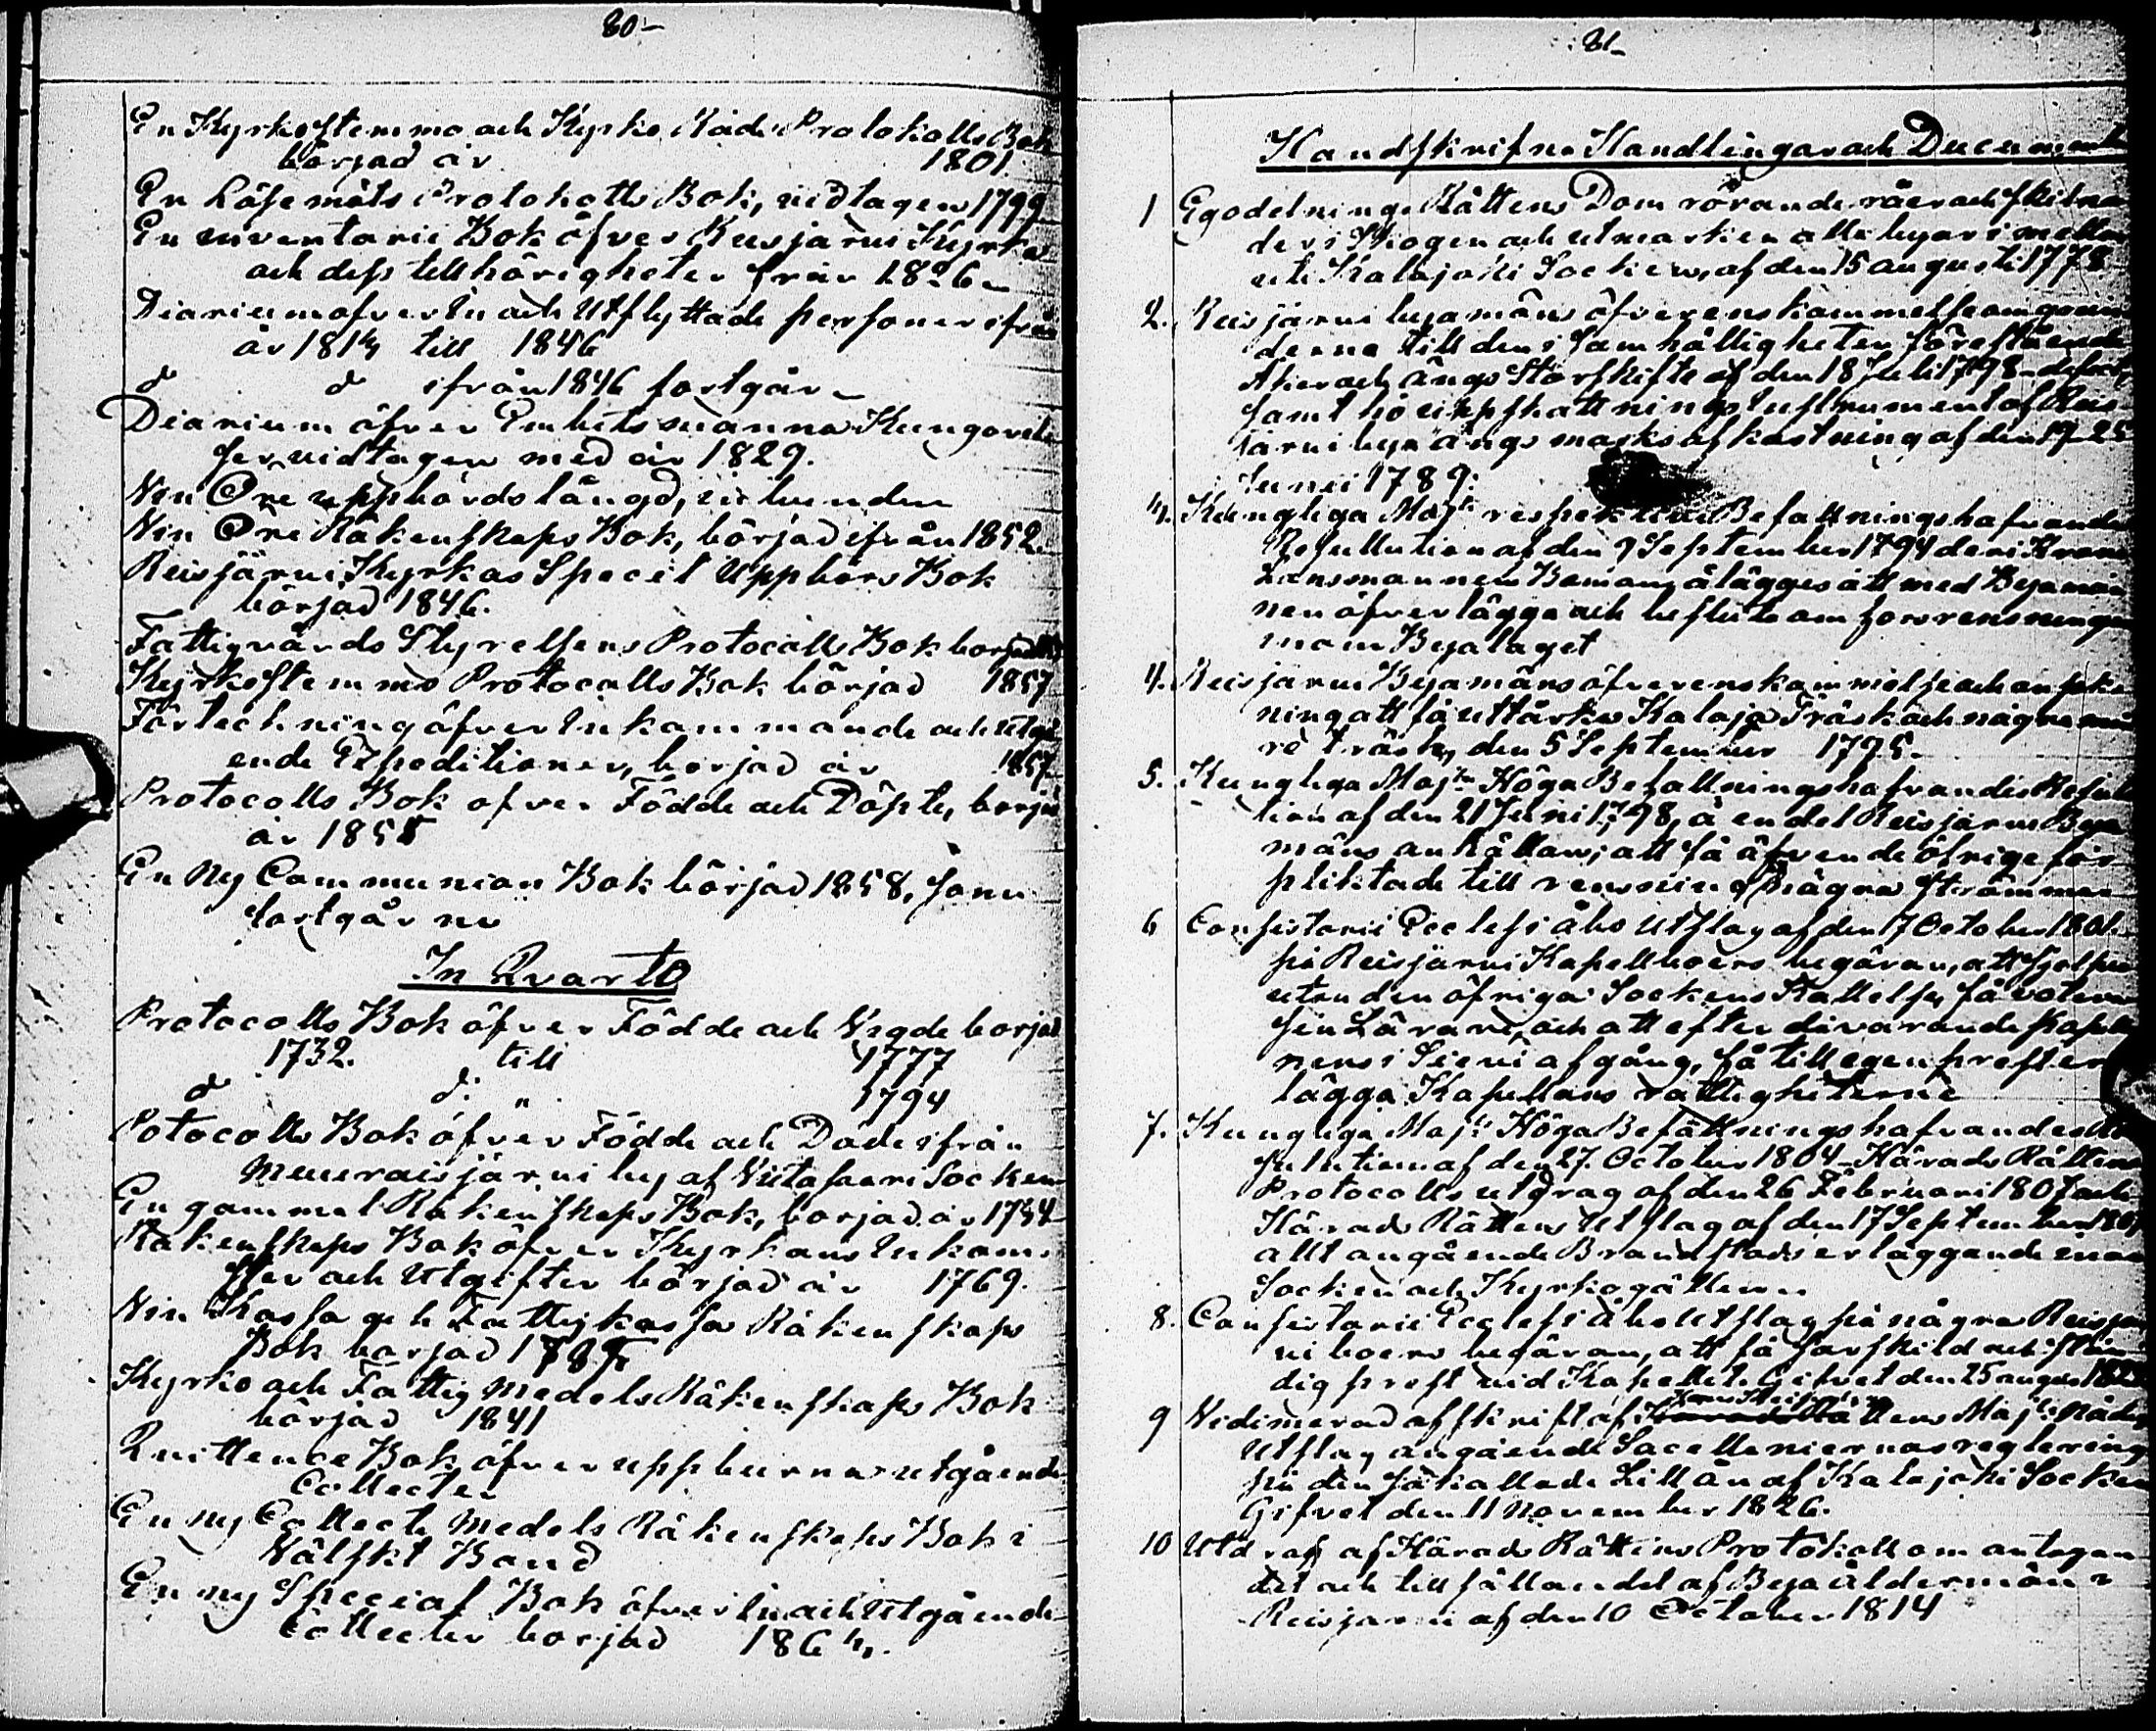 80-
En Kyrkostemmo och Kyrko Råds Protokolls Bok
börjad år 1801.
En Läsemöts Protokolls Bok, vidtagen 1799
En inventarii Bok öfver Reisjärvi Kyrka
och dess tillhörigheter från 1826
Diarium öfver In och Utflyttade personer ifrån
år 1814 till 1846
d d ifrån 1846 fortgår
Diarium öfver Embetsmanna Kungörel-
ser vidtagen med år 1829.
Nin Öre uppbördslängd, inbunden
Nin Öre Räkenskaps Bok, börjad ifrån 1852.
Reisjärvi Kyrkas Speciel Uppbörs Bok
börjad 1846.
Fattigvårds Styrelsens Protocolls Bok börjad
Kyrkostemmo Protocolls Bok börjad 1857
Förteckning öfver Inkommande och Utgå
ende Expeditioner, börjad år 1857
Protocolls Bok öfver Födde och Döpte, börja
år 1855
En Ny Communion Bok börjad 1858, som
fortgår nu
In Qvarto
Protocolls Bok öfver Födde och Vigde börjad
1732. till 1777
d d: " 1794
Potocolls Bok öfver Födde och Döde ifrån
Meuraisjärvi by af Viitasaari Socken
En gammal Räkenskaps Bok, börjad år 1754
Räkenskaps Bok öfver Kyrkans Inkom-
ster och Utgifter börjad år 1769.
Nin Kassa och Fattigkassa Räkenskaps
Bok börjad 1785
Kyrko och Fattig Medels Räkenskaps Bok
börjad 1841
Quittence Bok öfver uppburna utgående
Collecter
En ny Collect Medels Räkenskaps Bok i
Wälskt Band
En ny Special Bok öfver In och Utgående
Collecter börjad 1864.
81-
Handskrifne Handlingar och Document
1 Egodelnings Rättens Dom rörande råer och skilna
der i Skogen och utmarken alla byar imellan
uti Kalajoki Socken, af den 15 augusti 1778
2. Reisjärvi byamäns öfverenskommelse om grun
derna till den i samhälligheten förestående
Åker och ängs Storskifte af den 18 Juli 1798
samt hö uppskattnings Instrument af Reis
järvi bya ängs marks afkastning af den 19-25
Junii 1789:
4. Kungliga Majts respektive Befallningshafvande
Resolution af den 9 September 1794 deri Krono
Länsmannen Boman ålägges att med Byamän
nen öfverlägga och besluta om forsrensningen
inom Byalaget
4. Reisjärvi Byamäns öfverenskommelse och ansök
ning att få uttorka Kalaja Träsk och några min
re träsk, den 5 September 1795.
5. Kungliga Majts Höga Befallningshafvandes Resolu
tion af den 21 Juni 1798, å en del Reisjärvi Bya
mäns anhållan, att få äfven de öfrige för
pliktade till rensning några strömmar
6 Consistorii Ecclesi Åbo Utslag af den 17 October 1801.
på Reisjärvi Kapellboers begäran, att sjelfva
utan den öfriga Sockens Kallelse, få votera
sin Lärare, och att efter dåvarande Kapella
nens i Sievi afgång, få till egen prest er
lägga Kapellans rättigheterne
7. Kungliga Majts Höga Befallningshafvandes Re
solution af den 27. October 1804. Härads Rättens
Protocolls utdrag af den 26 Februari 1807 och
Härads Rättens Utslag af den 17 September 1807
allt angående Brandstods erläggande inom
Socken och Kyrkogällen.
8. Consistorii Ecclesi Åbo Utslag på några Reisjär
vi boers begäran, att få särskild och stän
dig prest vid Kapellet. Gifvet den 25 augusti
9 Vidimerad afskrift af Majts Nådiga
Utslag angående Sacellaniernas reglering
på den så kallade Lillån af Kalajoki Socken
Gifvet den 11 November 1826.
10 Utdrag af Härads Rättens Protokoll om antagan
det och tillsättandet af Bya Åldermän i
Reisjärvi af den 10 October 1814